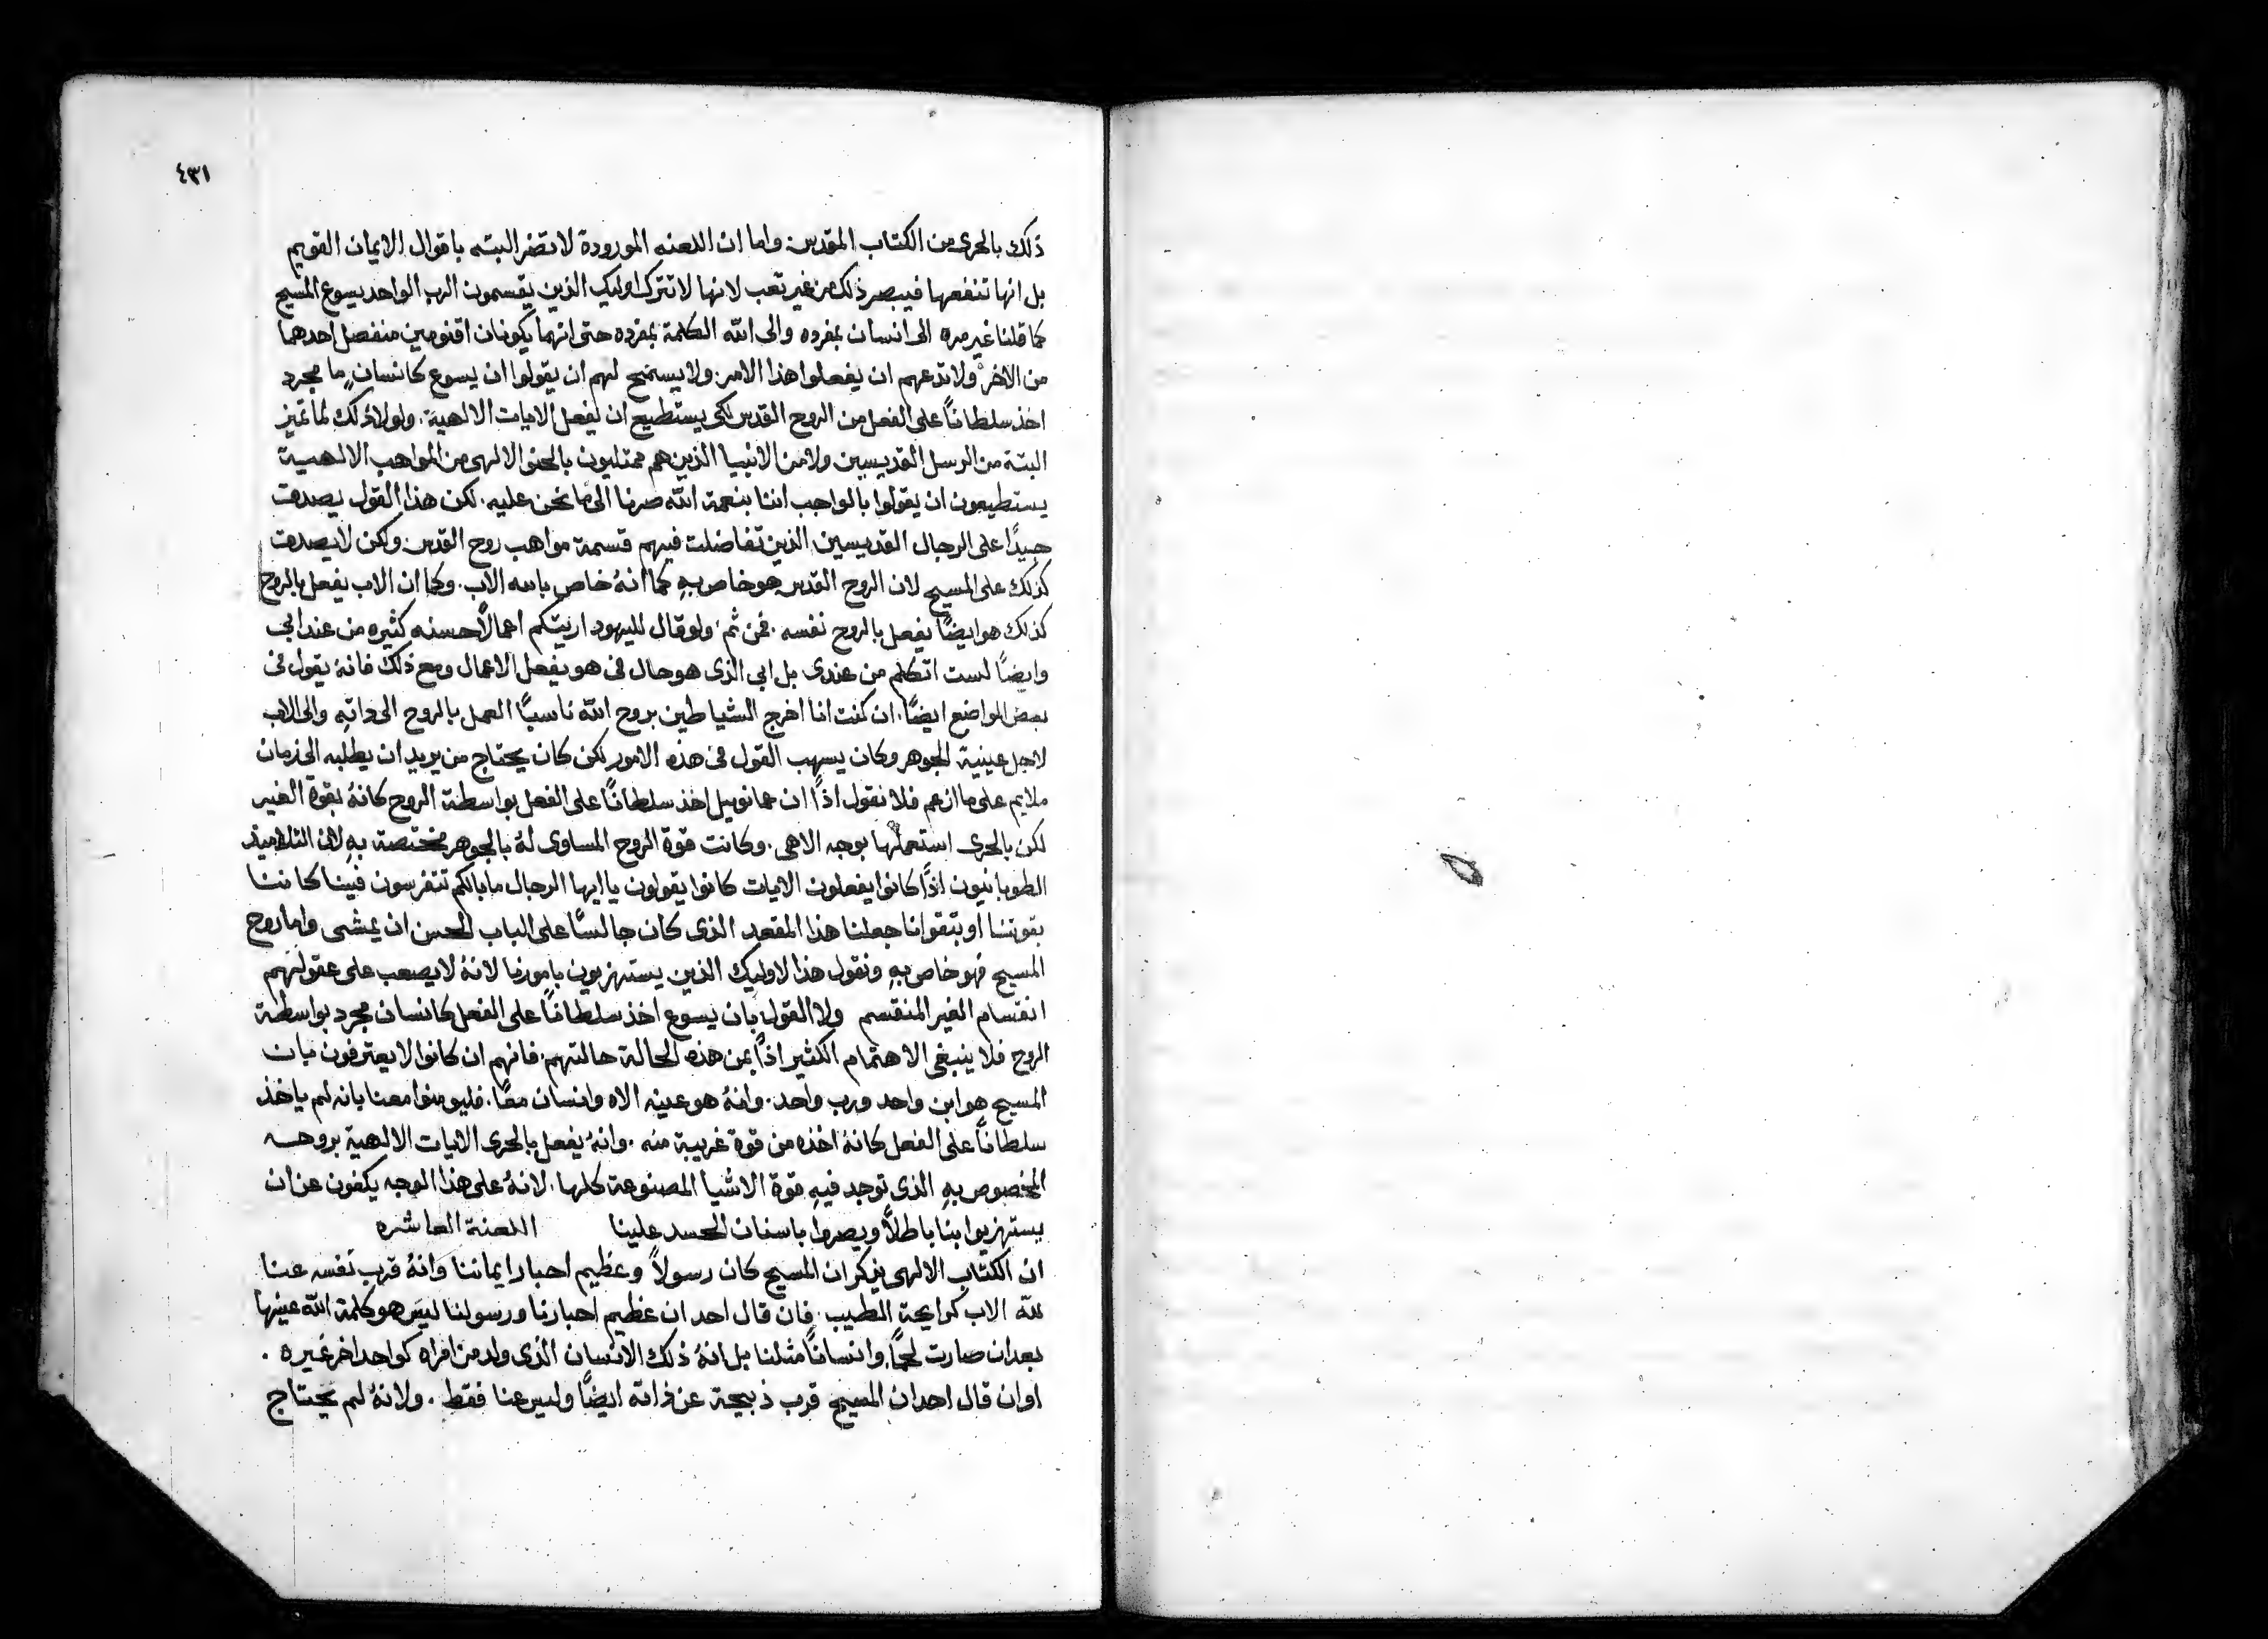 ٤٣١
ذلك بالحرى من الكتاب المقدس. واما ان اللعنه الموروده لا تضر البته باقوال الايمان القويم
بل انها تنفعها فيبصر ذلك من غير تعب لانها لا تترك اوليك الذين يقسمون الرب الواحد يسوع المسيح
كما قلنا غير مره الى انسان بمفرده والى الله الكلمة بمفرده حتى انهما يكونان اقنومين منفصل احدهما
من الاخر ولا تدعهم ان يفعلوا هذا الامر. ولا يسمح لهم ان يقولوا ان يسوع كانسانٍ ما مجرد
اخذ سلطانًا على الفعل من الروح القدس لكى يستطيع ان يفعل الايات الالهية. ولولا ذلك لما تميز
البتة من الرسل القديسين ولا من الانبيا الذين هم ممتليون بالحنو الالهى من المواهب الالهية
يستطيعون ان يقولوا بالواجب اننا بنعمة الله صرنا الى ما نحن عليه. لكن هذا القول يصدق
جيدًا على الرجال القديسين الذين تفاضلت فيهم قسمة مواهب روح القدس. ولكن لا يصدق
كذلك على المسيح لان الروح القدس هو خاص بهِ كما انهُ خاص بالله الاب. وكما ان الاب يفعل بالروح
كذلك هو ايضًا يفعل بالروح نفسه. فمن ثم ولو قال لليهود اريتكم اعمالًا حسنه كثيره من عند ابى
وايضًا لست اتكلم من عندى بل ابى الذى هو حال فى هو يفعل الاعمال ومع ذلك فانهُ يقول فى
بعض المواضع ايضًا. ان كنت انا اخرج الشياطين بروح الله ناسبًا العمل بالروح الى ذاتهِ والى الاب
لاجل عينية الجوهر وكان يسهب القول فى هذه الامور لكن كان يحتاج من يريد ان يطلبه الى زمان
ملايم على ما ازعم فلا نقول اذًا ان عمانوييل اخذ سلطانًا على الفعل بواسطة الروح كانهُ بقوة الغير
لكن بالحرى استعملها بوجه الاهى. وكانت قوة الروح المساوى لهُ بالجوهر مختصة بهِ لان التلاميذ
الطوبانيون اذًا كانوا يفعلون الايات كانوا يقولون يا ايها الرجال ما بالكم تتفرسون فينا كاننا
بقوتنا او بتقوانا جعلنا هذا المقعد الذى كان جالسًا على الباب الحسن ان يمشى واما روح
المسيح فهو خاص بهِ ونقول هذا لاوليك الذين يستهزيون بامورنا لانهُ لا يصعب على عقولهم
انقسام الغير المنقسم ولا القول بان يسوع اخذ سلطانًا على الفعل كانسان مجرد بواسطة
الروح فلا ينبغى الاهتمام الكثير اذًا بمن هذه الحالة حالتهم. فانهم ان كانوا لا يعترفون بان
المسيح هو ابن واحد ورب واحد. وانهُ هو عينه الاه وانسان معًا. فليومنوا معنا بانه لم ياخذ
سلطانًا على الفعل كانهُ اخذه من قوة غريبة منه. وانهُ يفعل بالحرى الايات الالهية بروحه
المخصوص بهِ الذى توجد فيهِ قوة الاشيا المصنوعة كلها. لانهُ على هذا الوجه يكفون عن ان
يستهزيوا بنا باطلًا ويصروا باسنان الحسد علينا اللعنة العاشره
ان الكتاب الالهى يذكر ان المسيح كان رسولًا وعظيم احبار ايماننا وانهُ قرب نفسه عنا
لله الاب كرايحة الطيب. فان قال احد ان عظيم احبارنا ورسولنا ليس هو كلمة الله عينها
بعد ان صارت لحمًا وانسانًا مثلنا بل انهُ ذلك الانسان الذى ولد من امراه كواحد اخر غيره.
او ان قال احد ان المسيح قرب ذبيحة عن ذاته ايضًا وليس عنا فقط. ولانهُ لم يحتاج